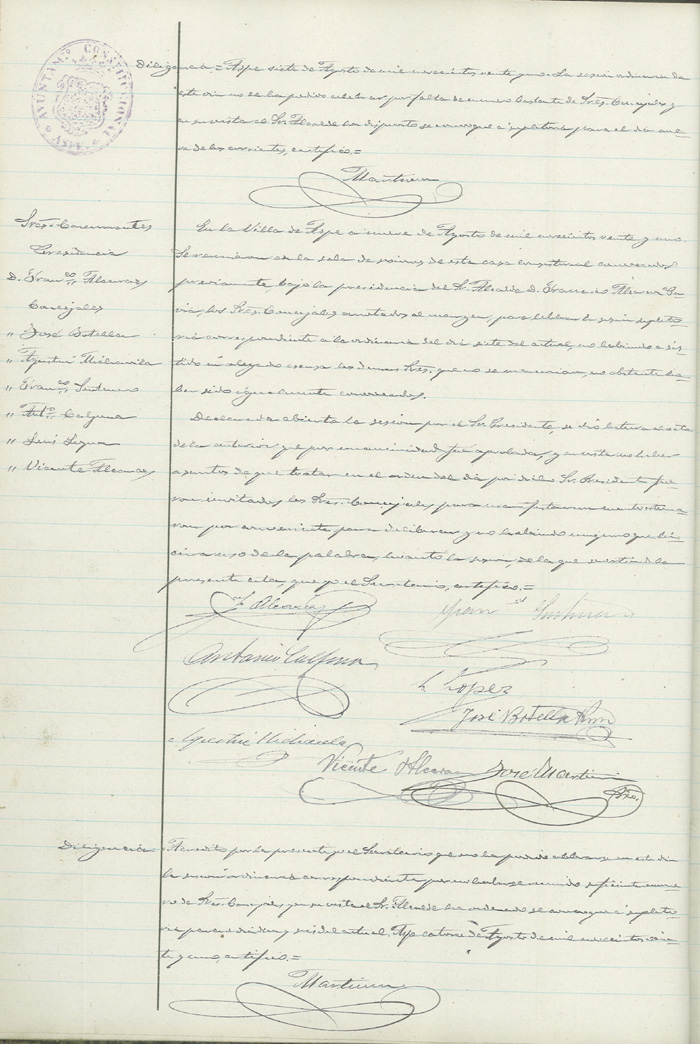 AYUNTAM.º CONSTITUCIONAL * ASPE *
Diligencia = Aspe siete de Agosto de mil novecientos veinte y uno. La sesion ordinaria de
este dia no se ha podido celebrar por falta de numero bastante de Sres. Concejales y
en su vista el Sr. Alcalde ha dispuesto se convoque a supletoria para el dia nue-
ve de los corrientes, certifico.=
Martinez
Sres. Concurrentes
Presidencia
D. Fran.co Alcaraz
Concejales
" José Botella
" Agustin Miralles
" Fran.co
" Ant.o Calpena
" Luis
" Vicente Alcaraz
En la Villa de Aspe a nueve de Agosto de mil novecientos veinte y uno.
Se reunieron en la sala de sesiones de esta casa consistorial convocados
previamente, bajo la presidencia del Sr. Alcalde D. Francisco Alcaraz
los Sres. Concejales anotados al margen, para celebrar la sesion supleto-
ria correspondiente a la ordinaria del dia siete del actual, no habiendo asis-
tido ni alegado escusa los demas Sres. que no se mencionan, no obstante ha-
ber sido igualmente convocados.
Declarada abierta la sesión por el Sr. Presidente, se dio lectura al acta
de la anterior que por unanimidad fue aprobada, y en vista no haber
asuntos de que tratar en el orden del dia por dicho Sr. Presidente fue
ron invitados los Sres. Concejales para manifestaran cuanto tuvie
ran por conveniente para deliberar y no habiendo ninguno que hi-
ciera uso de la palabra, levanto la sesion, de la que se extiende la
presente acta, que yo el Secretario, certifico.=
F. Alcaraz
Fran.co
Antonio Calpena
L. Lopez
José Botella
Agustin
Vicente Alcaraz
José Martinez
Srio.
Diligencia = Acredito por la presente yo el Secretario que no ha podido celebrarse en este dia
la sesión ordinaria correspondiente por no haberse reunido suficiente nume
ro de Sres. Concejales, y en su vista el Sr. Alcalde ha ordenado se convoque a supleto
ria para el dia diez y seis del actual. Aspe catorce de Agosto de mil novecientos vein-
te y uno, certifico.=
Martinez